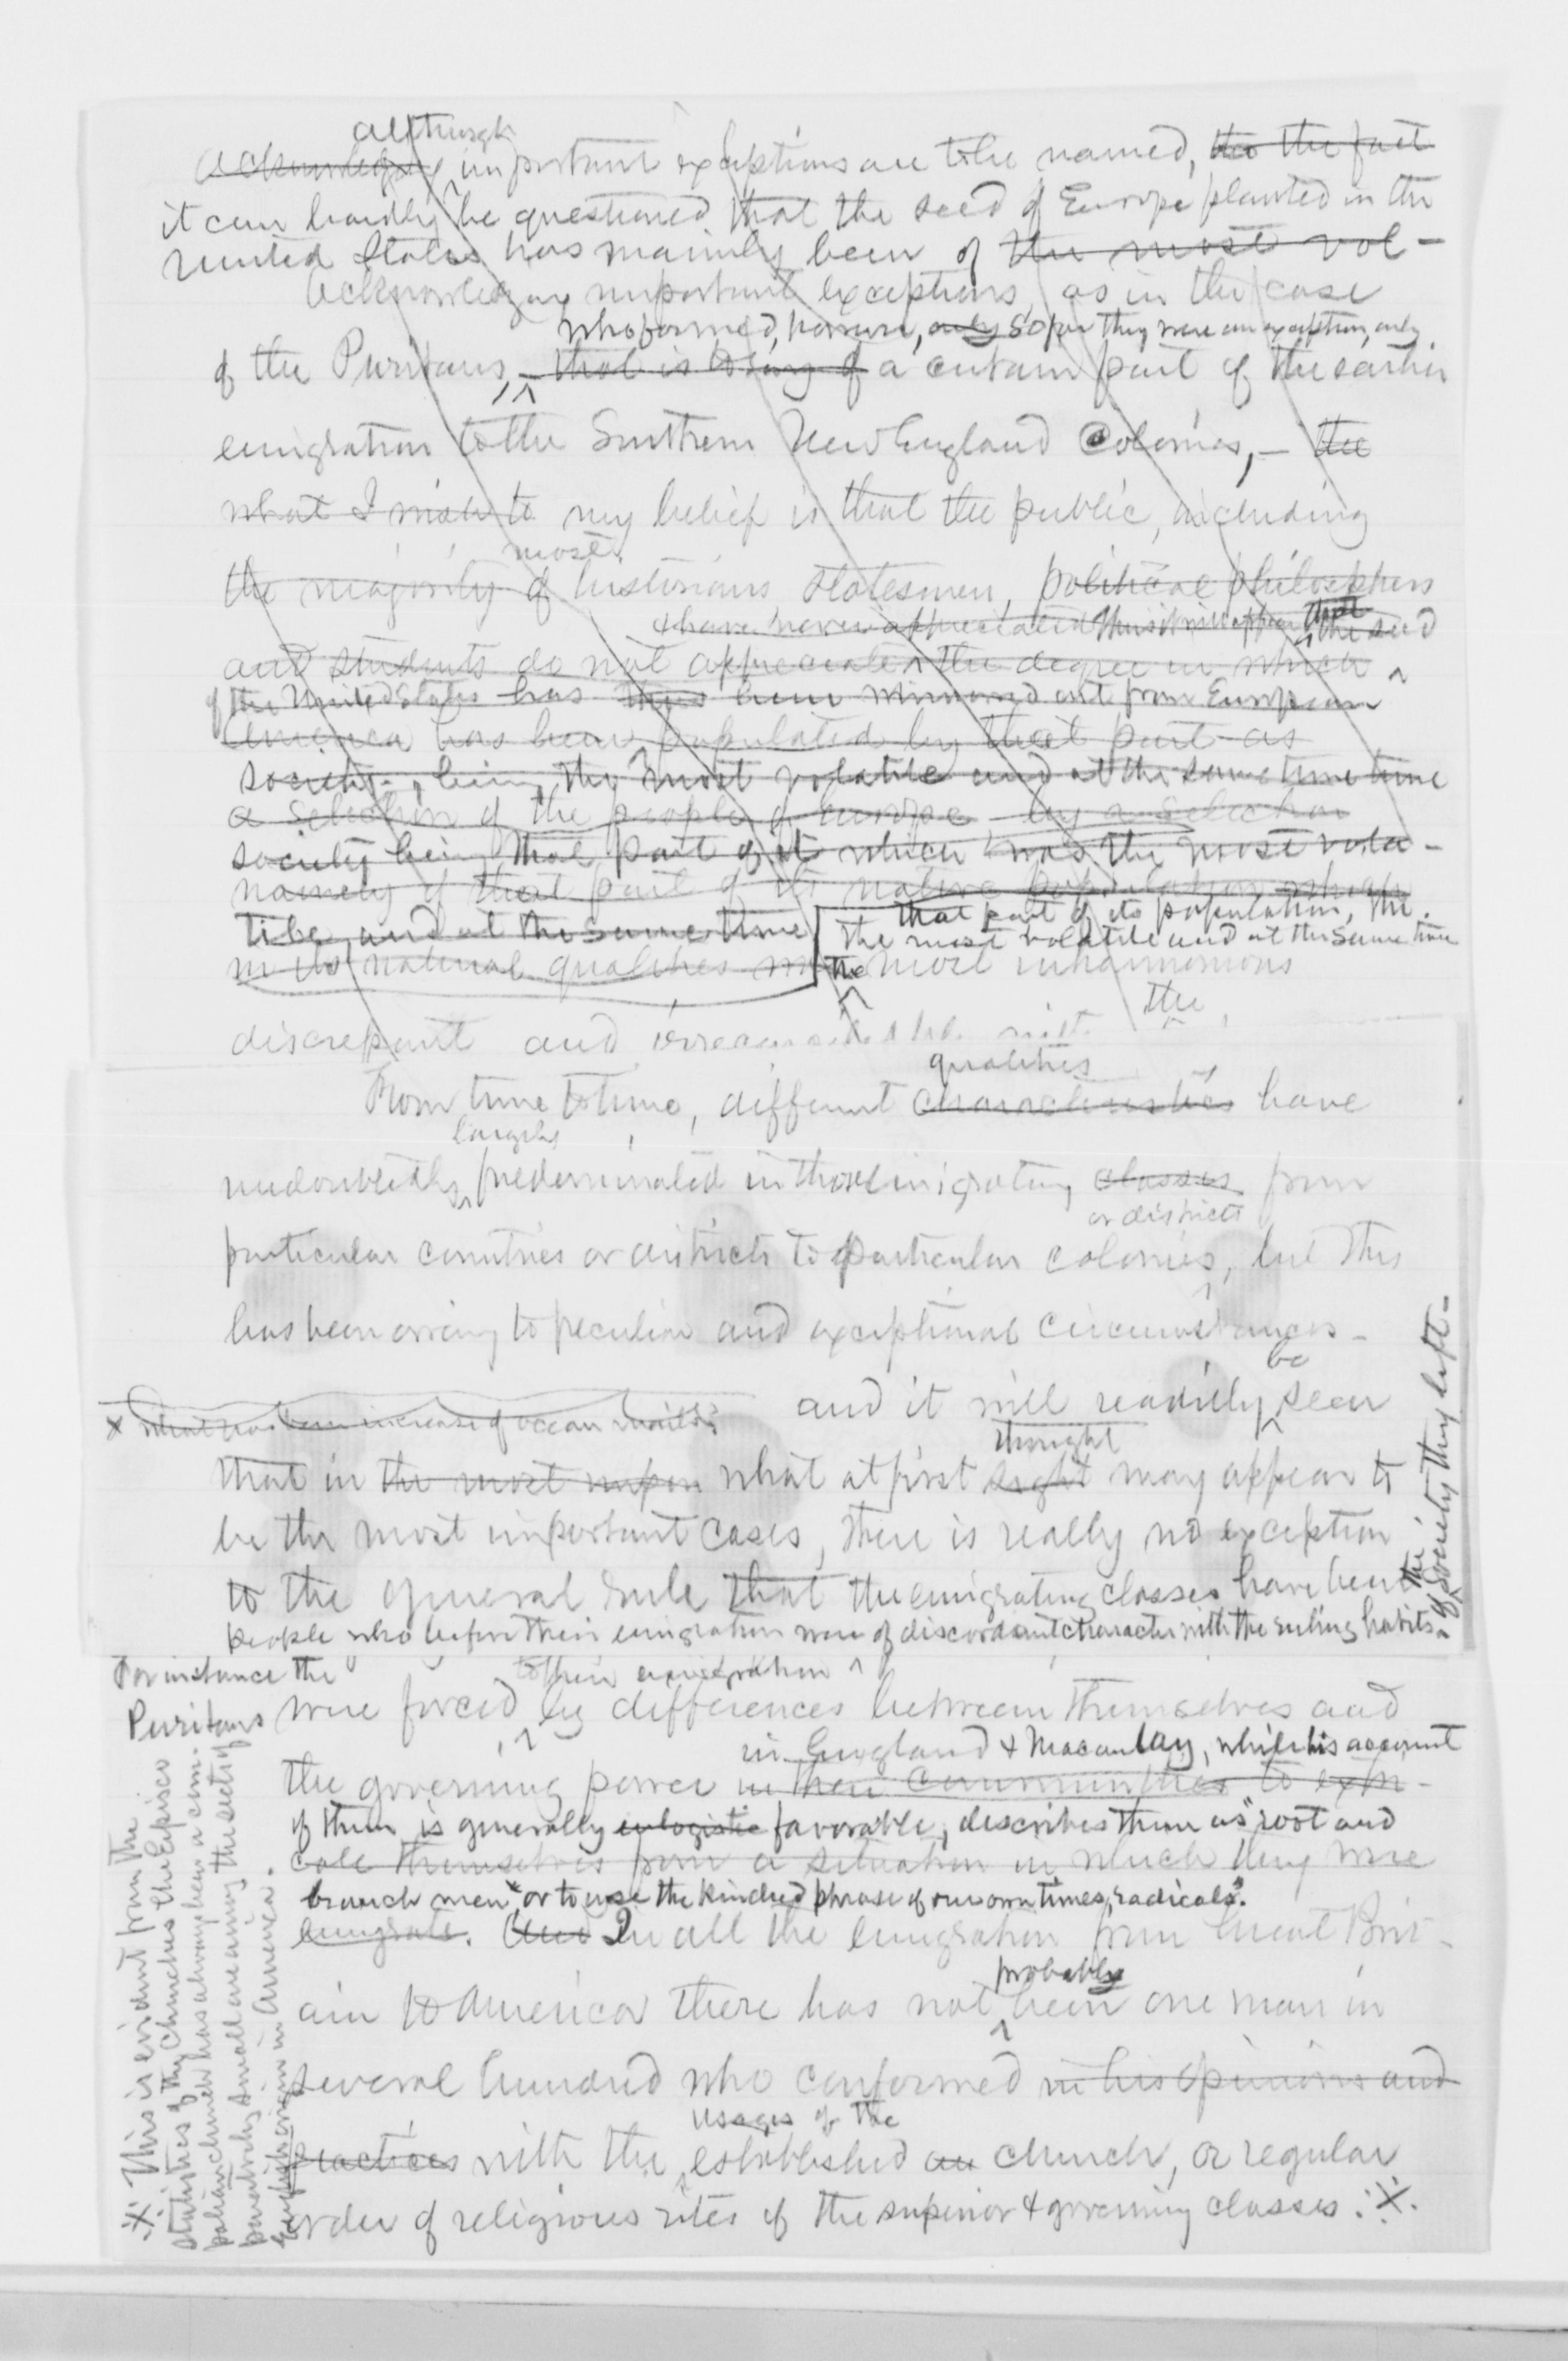 although
Acknowledging important exceptions are to be named, to the fact
it can hardly be questioned that the seed of Europe planted in the
United States has mainly been of the most vol-
Acknowledging important exceptions, as in the case
who formed, however, only so far they were an exception, only
of the Puritans, - that is to say of a certain part of the earlier
emigration to the Southern New England Colonies, - the
what I wish to my belief is that the public, including
most
the majority of historians statesmen, political philosophers
& have never appreciated Thus it will appear that the seed
and students do not appreciate the degree in which
of the United States has thus been winnowed out from European
America has been populated by that part as
society, being the most volatile and at the same time time
a selection of the people of Europe by a selection
society being that part of it which was the most vola-
namely of that part of its native population which
that part of its population, the
tile, and at the same time the most volatile and at the same time
in its natural qualities the most inharmonious
the
discrepant and
qualities
From time to time, different characteristics have
largely
undoubtedly predominated in those emigrating classes from
or districts
particular countries or districts to particular colonies, but this
has been owing to peculiar and exceptional circumstances-
be
x what has been increase of ocean mails? and it will readily seen
thought
that in the most impor what at first sight may appear to
be the most important cases, there is really no exception
to the general rule that the emigrating classes have been
people who before their emigration were of discordant character with the ruling habits
of the society they left-
For instance the to their emigration
Puritans were forced by differences between themselves and
in England & Macaulay, while his account
the governing power in their communities to exp-
of them is generally eulogistic favorable, describes them as "root and
cate themselves from a situation in which they were
branch men", or to use the kindred phrase of our own times, radicals".
emigrate. And In all the emigration from Great Brit-
probably
ain to America there has not been one man in
several hundred who conformed in his opinions and
usages of the
practices with the established church, or regular
order of religious rites of the superior & governing classes. ※
※ This is evident from the
statistics of the Churches the Episco
palian church has always been a com-
paratively small one among the sects of
English origin in America.